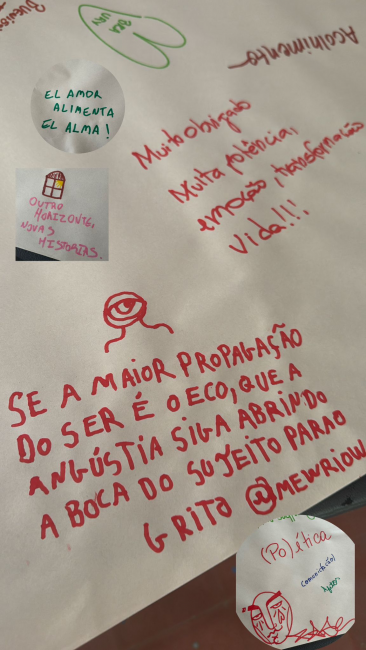 Acolhimento
EL AMOR
ALIMENTA
EL ALMA!
Muito obrigado
Muita potência,
emoção, transformação
Vida!!!
OUTRO
HORIZONTE,
NOVAS
HISTORIAS.
SE A MAIOR PROPAGAÇÃO
DO SER É O ECO, QUE A
ANGÚSTIA SIGA ABRINDO
A BOCA DO SUJEITO PARA O
GRITO @MEWRIOW
(Po)ética
Comunicação
Afetos